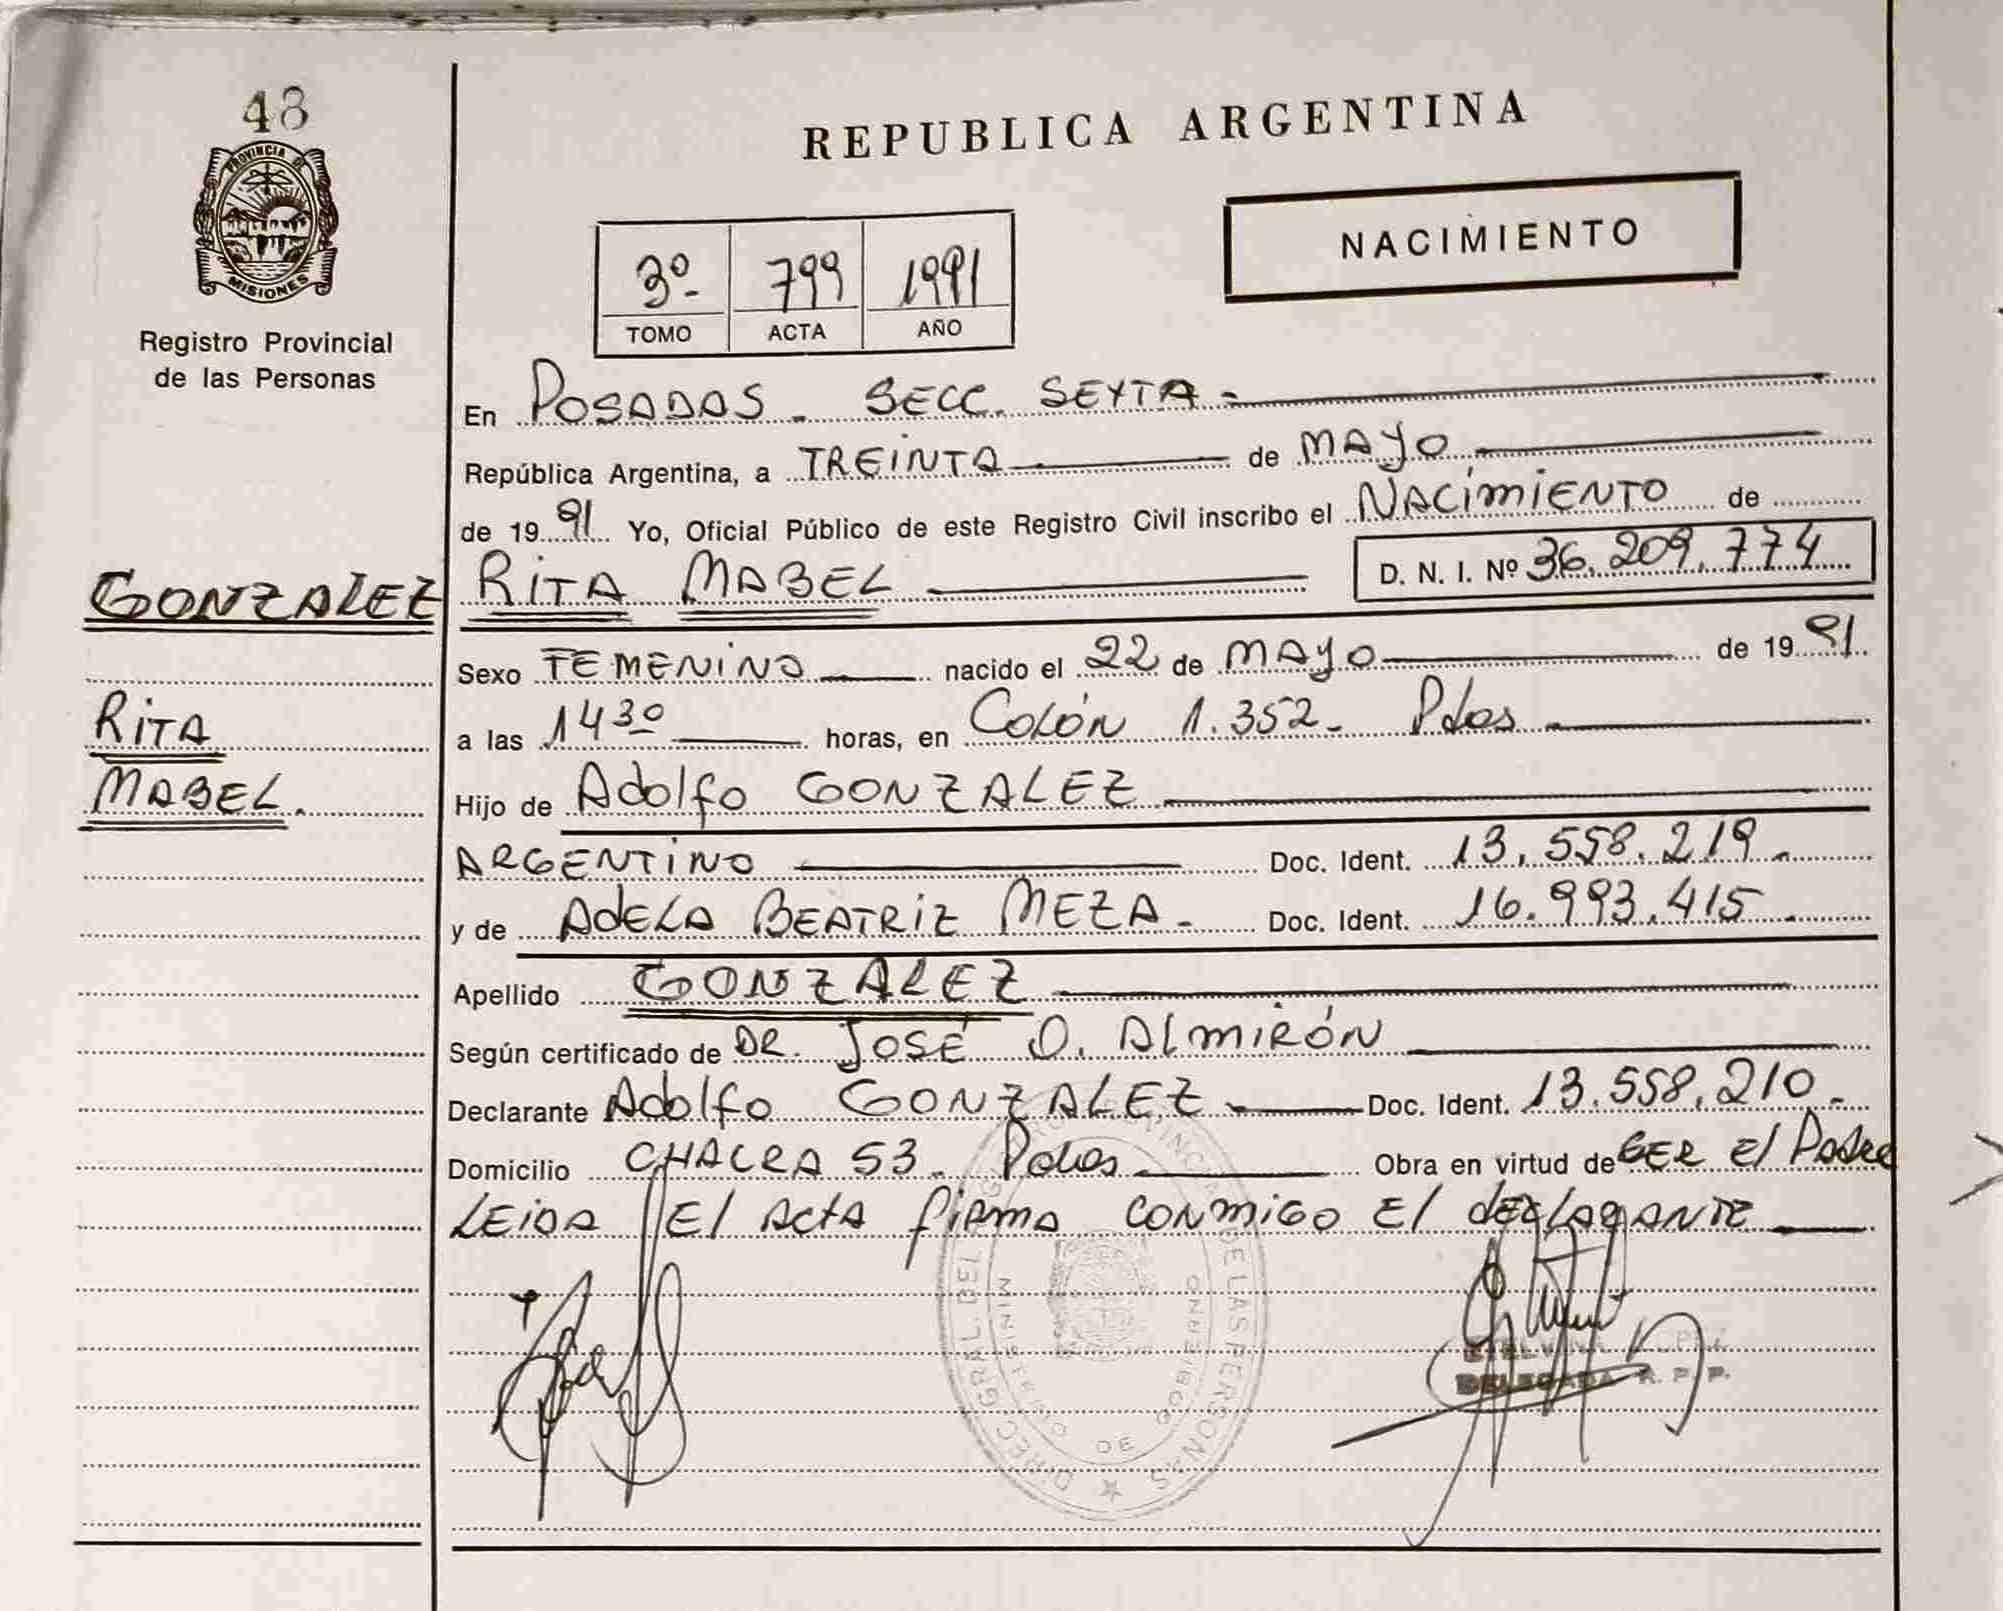 48
PROVINCIA DE
MISIONES
Registro Provincial
de las Personas
REPUBLICA ARGENTINA
NACIMIENTO
3º 799 1991
TOMO ACTA AÑO
En POSADAS - SECC. SEXTA -
República Argentina, a TREINTA de MAYO
de 19 91 Yo, Oficial Público de este Registro Civil inscribo el NACIMIENTO de
GONZALEZ RITA MABEL D. N. I. Nº 36.209.774
Sexo FEMENINO nacido el 22 de MAYO de 19 91
RITA
a las 14 30 horas, en COLÓN 1.352 - Pdas
MABEL.
Hijo de Adolfo GONZALEZ
ARGENTINO Doc. Ident. 13.558.219
y de ADELA BEATRIZ MEZA - Doc. Ident. 16.993.415
Apellido GONZALEZ
Según certificado de DR. JOSÉ O. ALMIRÓN
Declarante Adolfo GONZALEZ Doc. Ident. 13.558.210
Domicilio CHACRA 53 - Pdas Obra en virtud de SER El Padre
LEIDA El ActA firma conmigo El declarante
DIREC. GRAL. DEL DE LAS PERSONAS
MINISTERIO DE GOBIERNO
DELEGADA R. P. P.